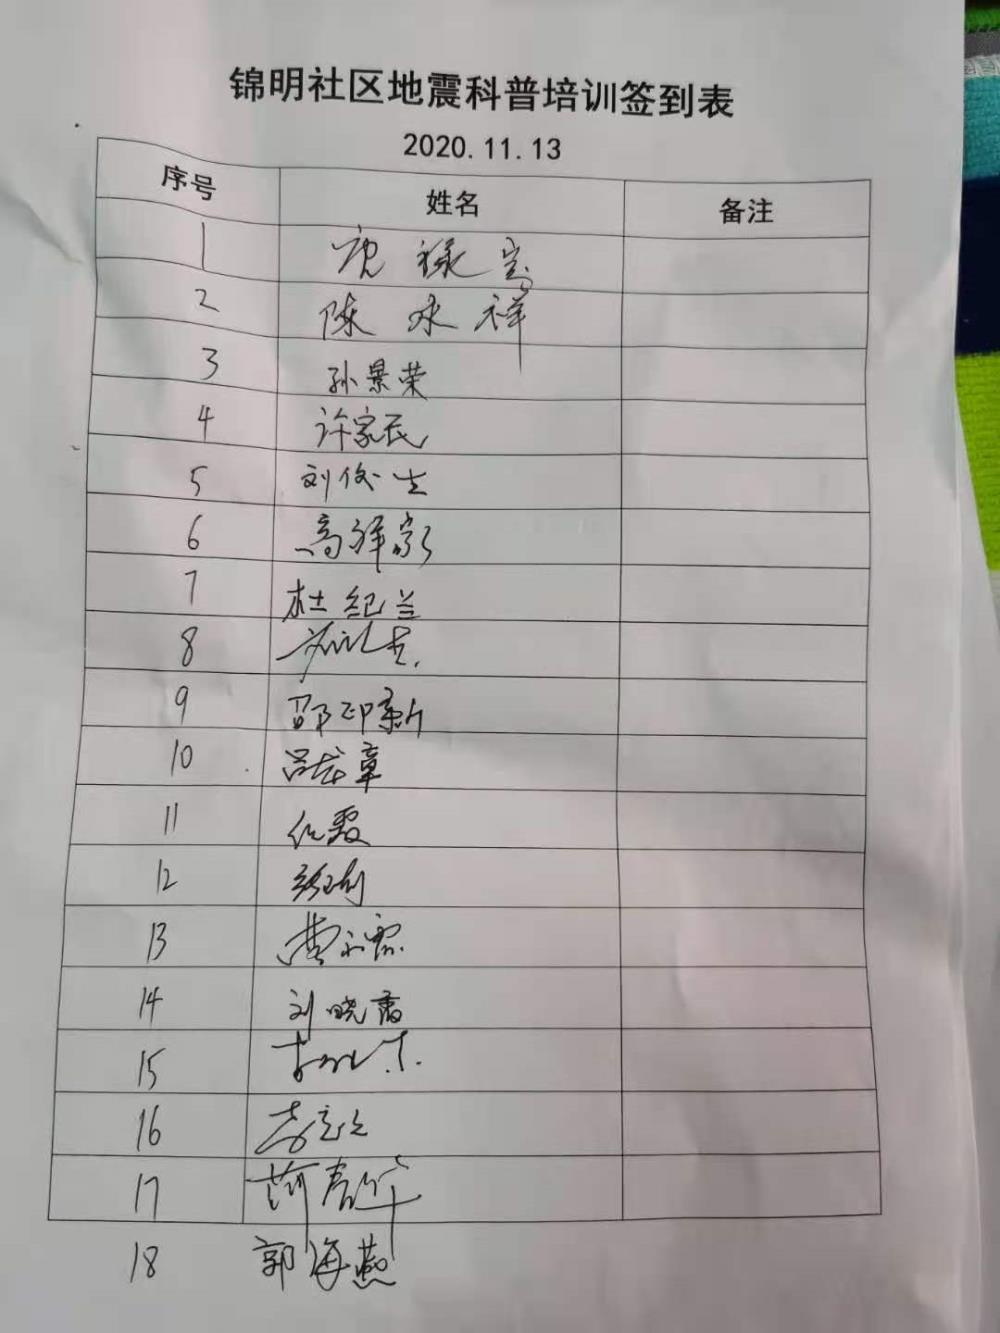 锦明社区地震科普培训签到表
2020.11.13
序号 姓名 备注
1
2 陈永祥
3 孙景荣
4 许家民
5 刘俊生
6 高祥家
7 杜纪兰
8
9 邵印新
10 吕龙章
11 任霞
12
13 黄永霞
14 刘晓霞
15
16 李立
17
18 郭海燕